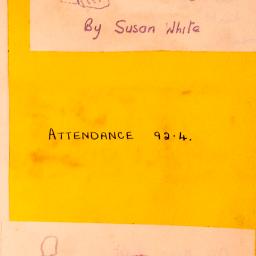 By Susan White
ATTENDANCE 92.4.